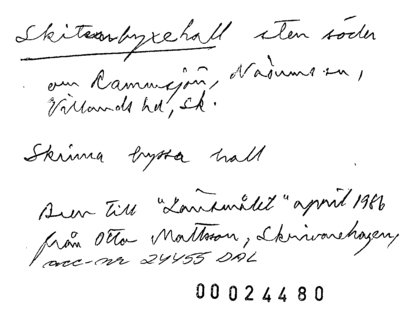 Skitarebyxehall sten söder
om Rammsjön, Näsums sn,
Villands hd, Sk.
Skinna byssa hall
Brev till "Länsmålet" april 1986
från Otto Mattsson, Skrivarehagen,
acc-nr 24455 DAL
00024480